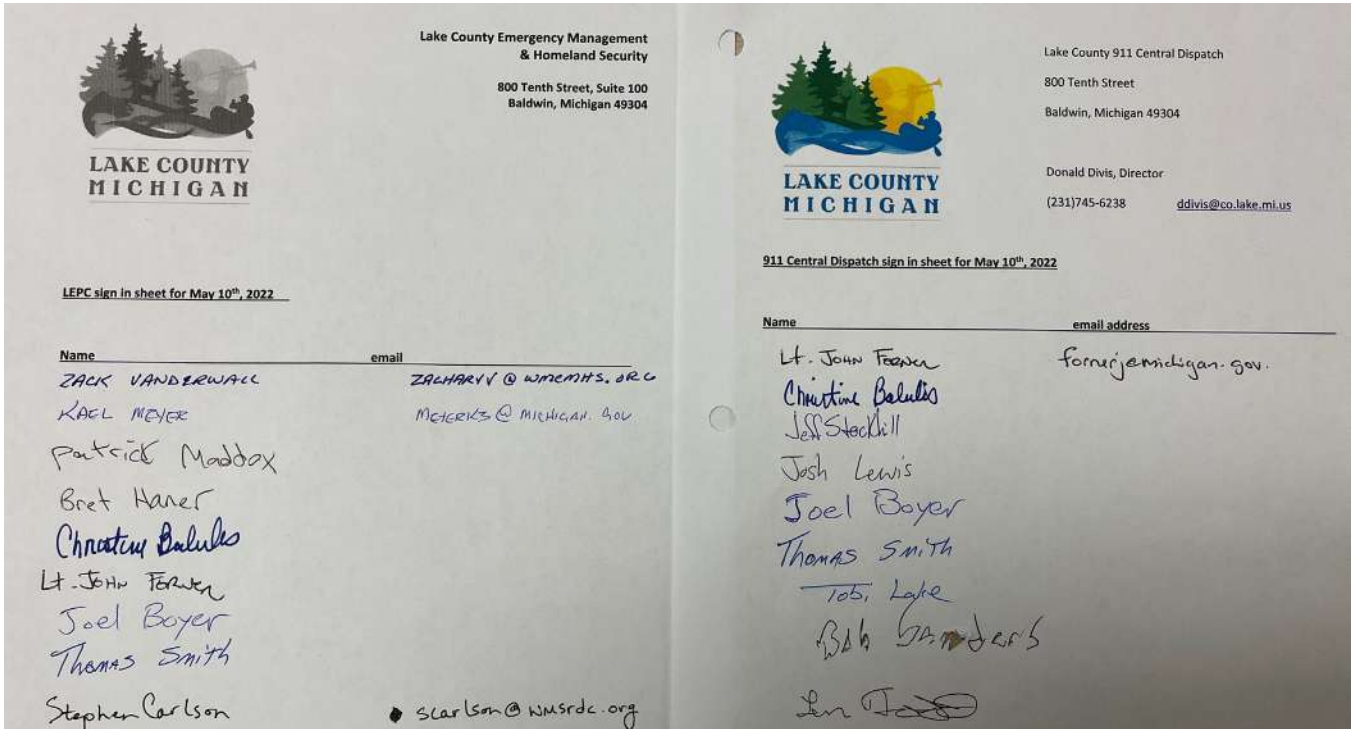 Lake County Emergency Management
& Homeland Security
800 Tenth Street, Suite 100
Baldwin, Michigan 49304
LAKE COUNTY
MICHIGAN
LEPC sign in sheet for May 10th, 2022
Name email
ZACK VANDERWALL ZACHARYV@WMEMHS.ORG
KAEL MEYER @MICHIGAN.GOV
Patrick Maddox
Bret Haner
Christine Balulis
Lt. JOHN FORNER
Joel Boyer
THOMAS SMITH
Stephen Carlson scarlson@wmsrdc.org
Lake County 911 Central Dispatch
800 Tenth Street
Baldwin, Michigan 49304
LAKE COUNTY
MICHIGAN
Donald Divis, Director
(231)745-6238 ddivis@co.lake.mi.us
911 Central Dispatch sign in sheet for May 10th, 2022
Name email address
Lt. JOHN FORNER fornerj@michigan.gov.
Christine Balulis
Jeff Stockhill
Josh Lewis
Joel Boyer
THOMAS SMITH
Tobi Lake
Bob Sanders